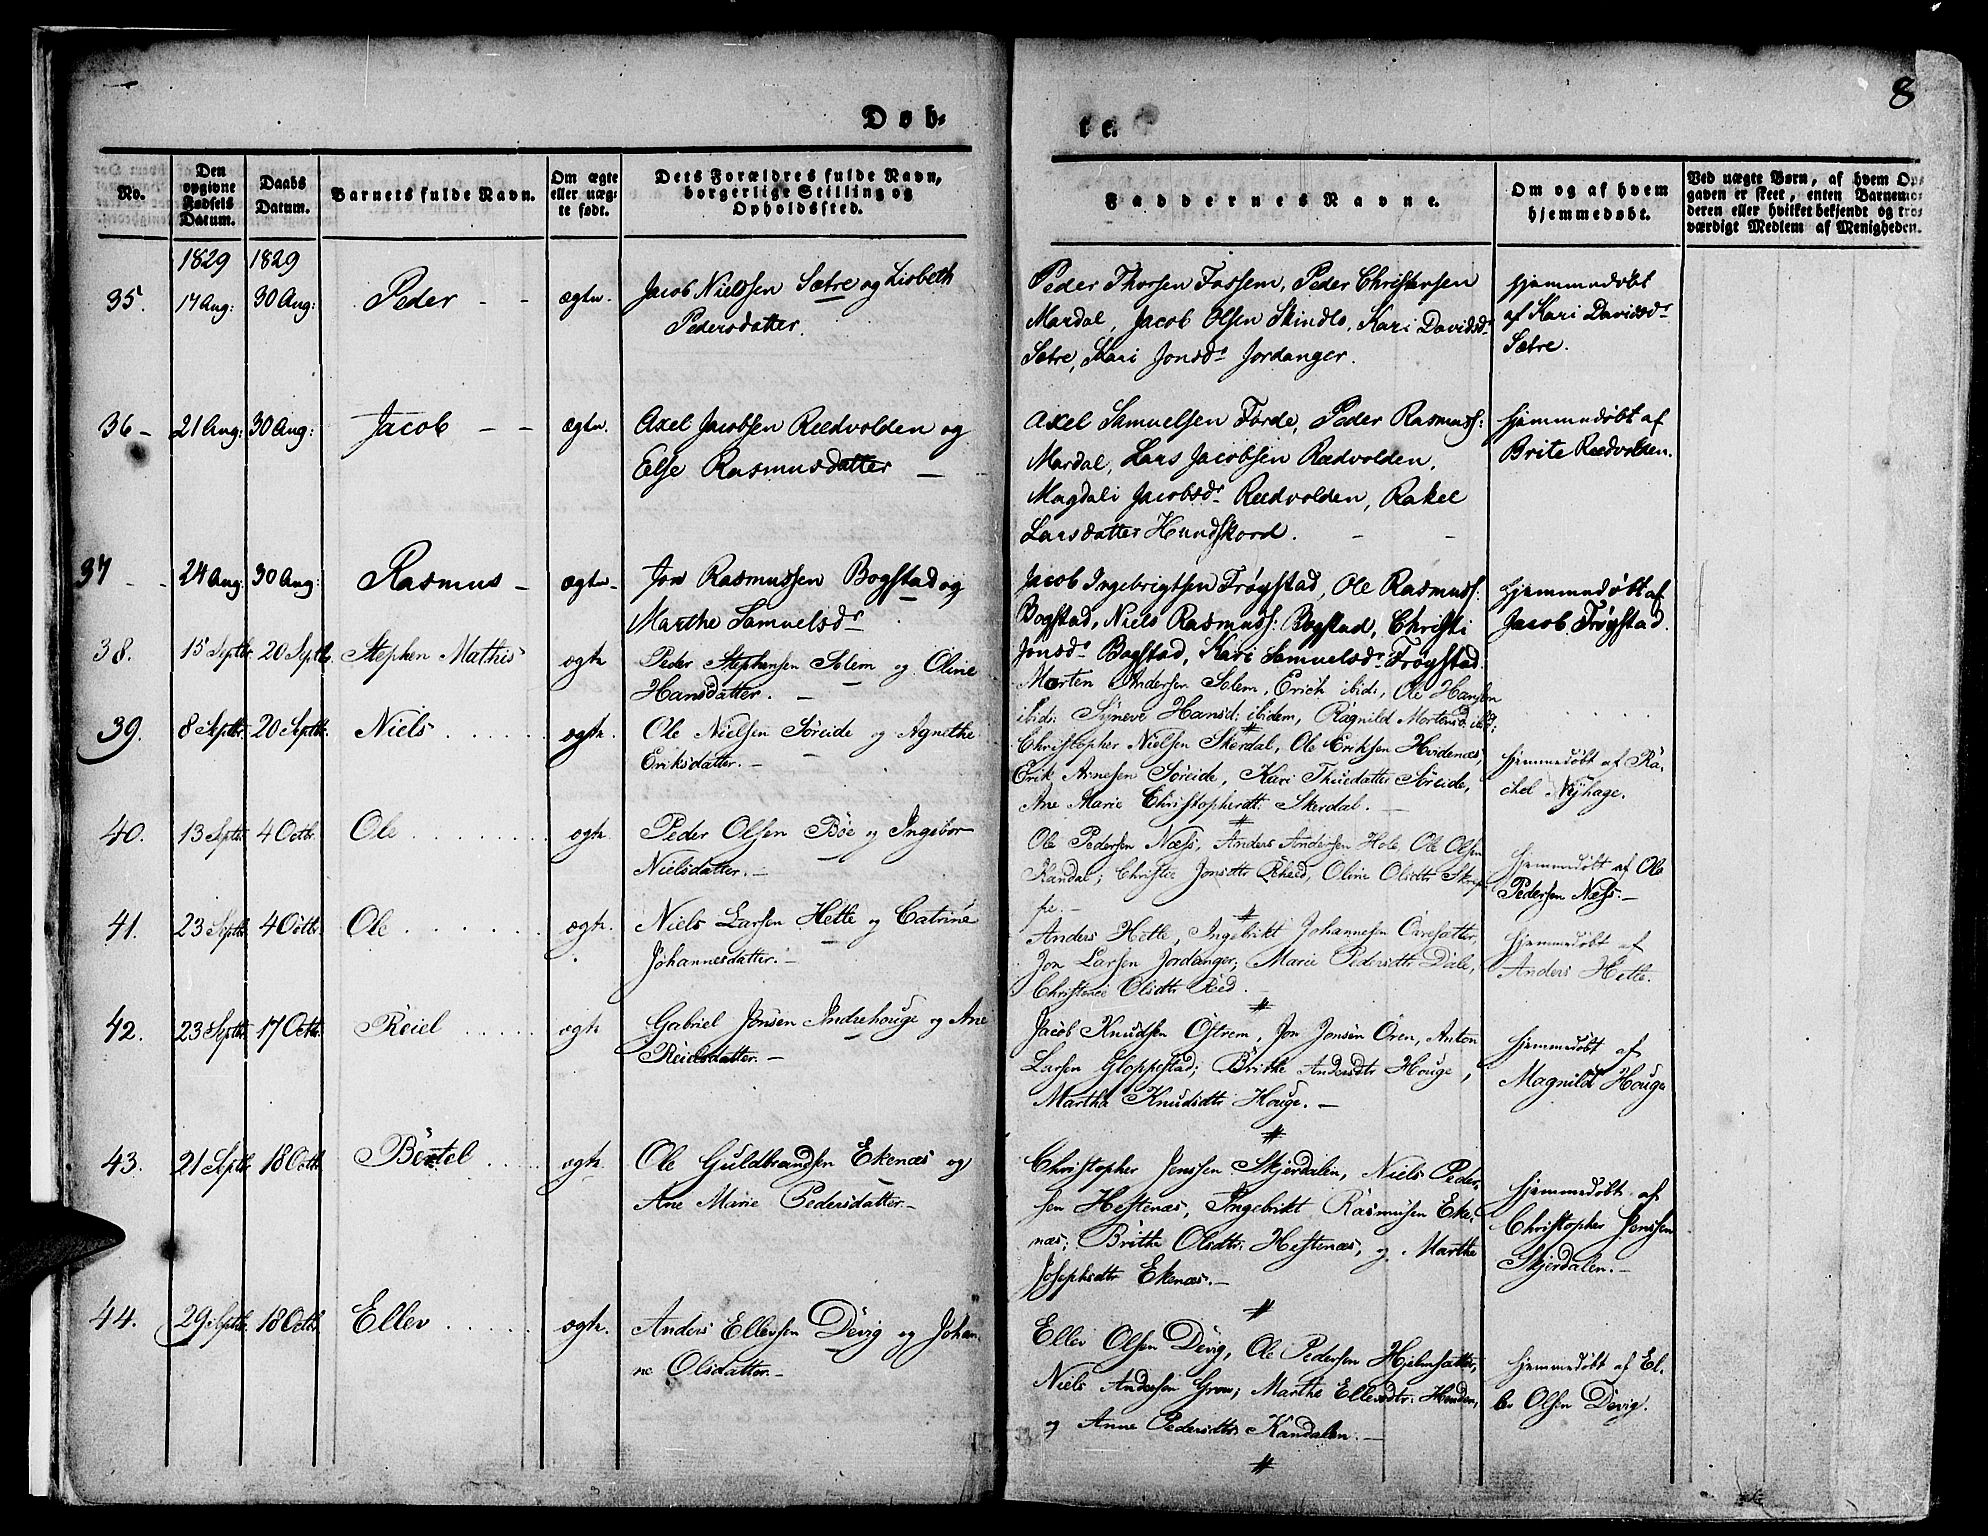 8
Døb-
te.
No.
Den opgivne Fødsels Datum.
Daabs Datum.
Barnets fulde Navn.
Om ægte eller uægte født.
Dets Forældres fulde Navn, borgerlige Stilling og Opholdssted.
Faddernes Navne.
Om og af hvem hjemmedøbt.
Ved uægte Børn, af hvem Opgaven er skeet, enten Barnemoderen eller hvilket bekjendt og troværdigt Medlem af Menigheden.
1829 1829
35. 17 Aug: 30 Aug: Peder - - ægte.
Jacob Nielssen Sætre og Lisbeth
Pedersdatter.
Peder Thorsen Fossem, Peder Christensen
Mardal, Jacob Olsen Skindlo, Kari Davidsdr
Sætre, Kari Jonsdr Jordanger.
hjemmedøbt
af Kari Davidsdr
Sætre.
36 - 21 Aug: 30 Aug: Jacob - - ægte.
Axel Jacobsen Rædvolden og
Else Rasmusdatter -
Axel Samuelsen Førde, Peder Rasmuss:
Mardal, Lars Jacobsen Rædvolden,
Magdali Jacobsdr Rædvolden, Rakel
Larsdatter Hundskord. - -
hjemmedøbt af
Brite Rædvolden.
37 - - 24 Aug: 30 Aug: Rasmus - ægte -
Jon Rasmussen Bogstad og
Marthe Samuelsdr.
Jacob Ingebrigtsen Frøystad, Ole Rasmuss:
Bogstad, Niels Rasmuss: Bogstad, Christi
Jonsdr Bogstad, Kari Samuelsdr Frøystad.
hjemmedøbt af
Jacob Frøystad.
38. 15 Septbr. 20 Septbr. Stephen Mathis ægte
Peder Stephensen Solem og Oline
Hansdatter. -
Morten Andersen Solem, Erich ibid:, Ole Hansen
ibid: Synneve Hansd: ibidem, Ragnild Mortensd: ibid:
39. 8 Septbr. 20 Septbr. Niels . . . . . ægte.
Ole Nielsen Søreide og Agnethe
Eriksdatter. -
Christopher Nielsen Skerdal, Ole Eriksen Hvidenæs,
Erik Arnesen Søreide, Kari Thuedatter Søreide,
Ane Marie Christopherdtr: Skerdal. -
hjemmedøbt af Ra-
chel Nyhage.
40. 13 Septbr. 4 Octbr. Ole . . . . . . ægte.
Peder Olsen Bøe og Ingebor
Nielsdatter. -
Ole Pedersen Næss, Anders Andersen Hole, Ole Olsen
Kandal; Christie Jonsdtr Rheed, Oline Olsdtr
hjemmedøbt af Ole
Pedersen Næss. -
41. 23 Septbr. 4 Octbr. Ole . . . . . . ægte.
Niels Larsen Hetle og Catrine
Johannesdatter. -
Anders Hetle, Ingebrikt Johannesen
Jon Larsen Jordanger, Marie Pedersdtr Dale,
Christence Olsdtr Reed. -
hjemmedøbt af
Anders Hetle.
42. 23 Septbr. 17 Octbr. Reiel . . . . ægte
Gabriel Jonsen Indrehouge og Ane
Reielsdatter. -
Jacob Knudsen Østrem, Jon Jonsen Ören, Anton
Larsen Gloppestad; Brithe Andersdtr Houge,
Martha Knudsdtr Houge. -
hjemmedøbt af
Magnild Houge
43. 21 Septbr. 18 Octbr. Bertel . . . . ægte.
Ole Guldbrandsen Ekenæs og
Ane Marie Pedersdatter. -
Christopher Jenssen Skjerdalen, Niels Peder-
sen Hestenæs, Ingebrikt Rasmusen Eke-
næs; Brithe Olsdtr: Hestenæs, og Marthe
Josephsdtr Ekenæs. -
hjemmedøbt af
Christopher Jenssen
Skjerdalen. -
44. 29 Septbr. 18 Octbr. Ellev . . . . . ægte.
Anders Ellevsen Devig og Johan-
ne Olsdatter. -
Ellev Olsen Devig, Ole Pedersen Hjelmsætter,
Niels Andersen Grov; Marthe Ellevsdtr: Henden,
og Anne Pedersdtr Kandalen. -
hjemmedøbt af El-
lev Olsen Devig.